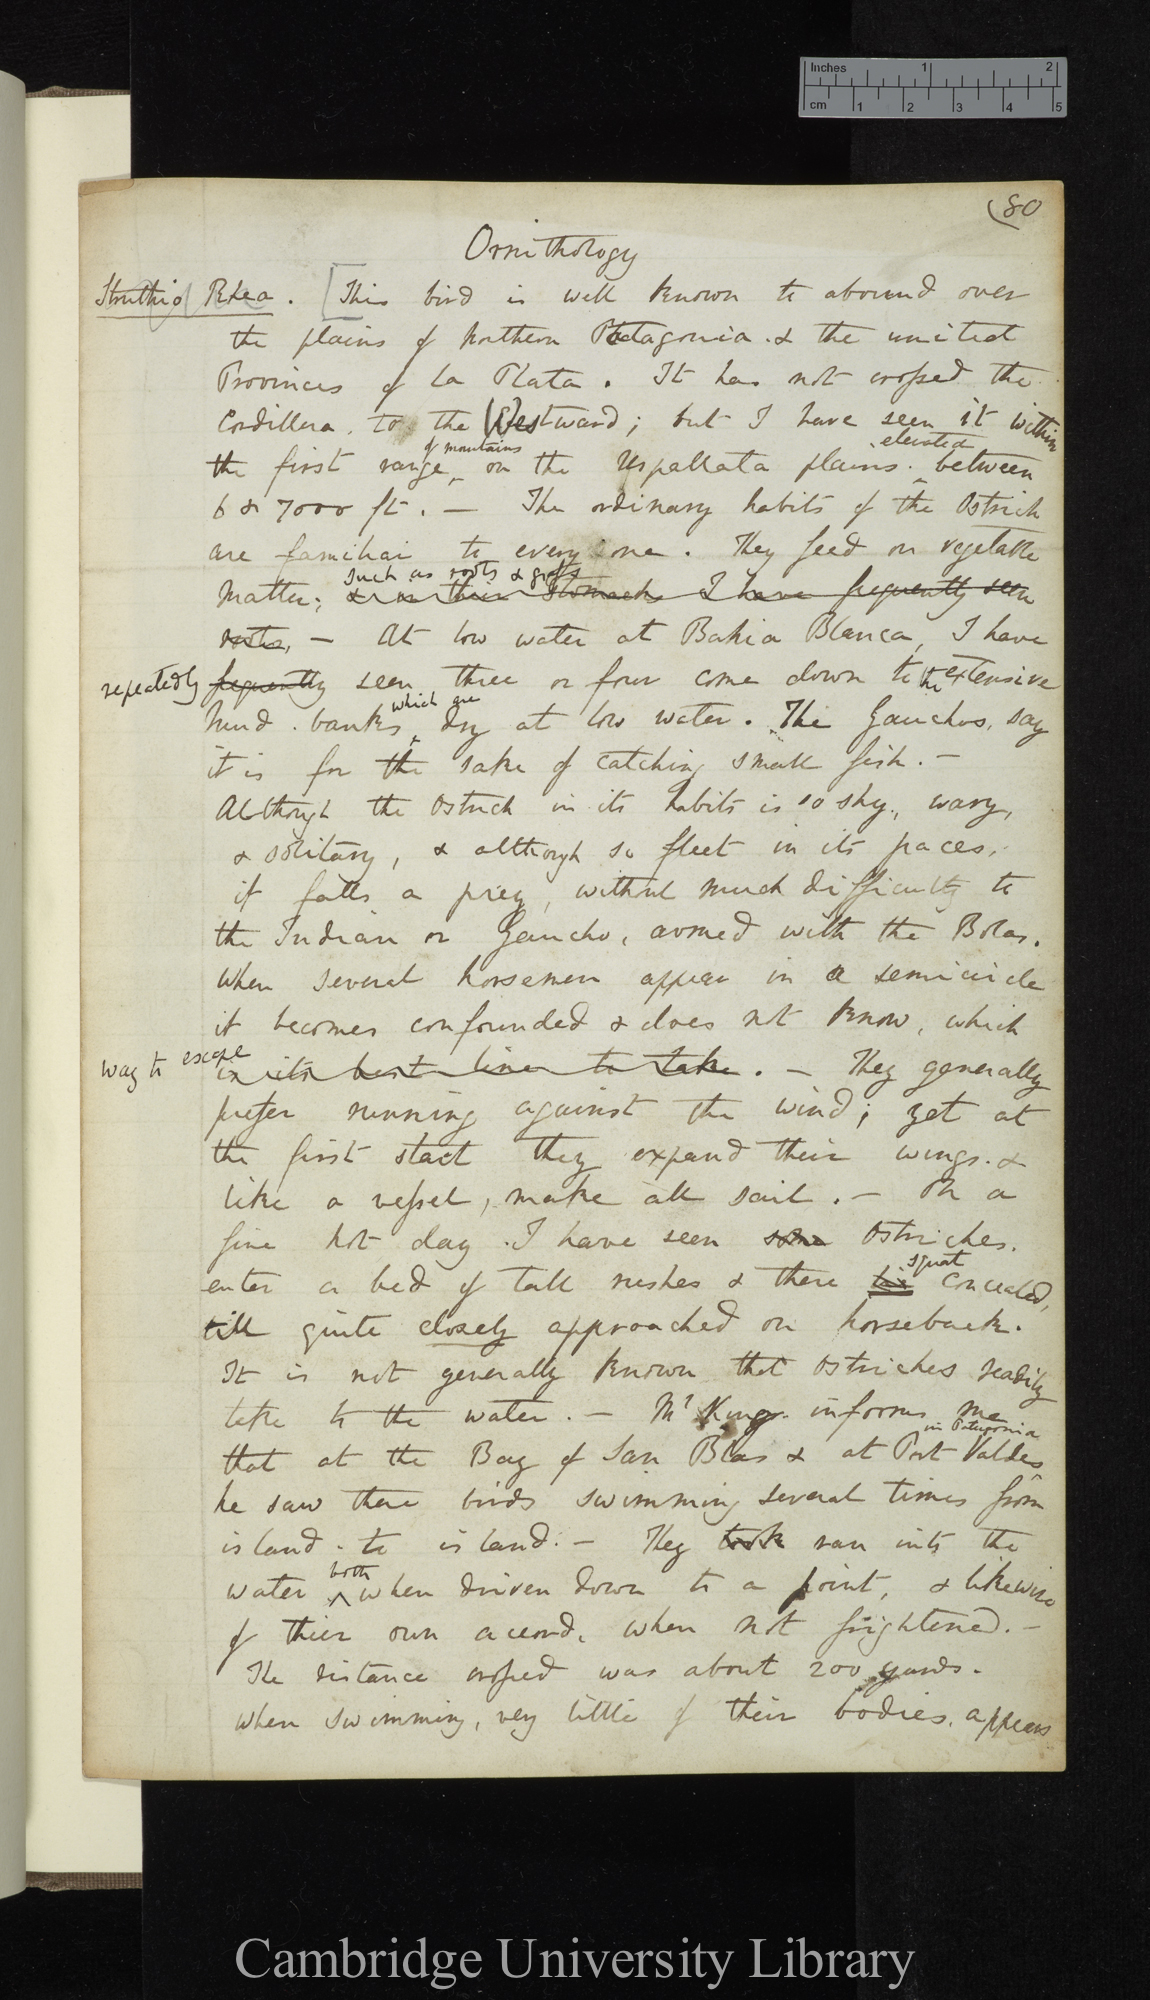 Inches 1 2
cm 1 2 3 4 5
(80
Ornithology
Struthio Rhea. [This bird is well known to abound over
the plains of northern Patagonia. & the united
Provinces of La Plata. It has not crossed the
Cordillera. to the Westward; but I have seen it within
of mountains elevated
the first range, on the Uspallata plains. between
6 & 7000 ft. — The ordinary habits of the Ostrich
are familiar to every one. They feed on vegetable
such as roots & grass
matter; & in their stomachs I have frequently seen
roots, — At low water at Bahia Blanca, I have
repeatedly frequently seen three or four come down to the extensive
which are
mud. banks dry at low water. The Gauchos, say
it is for the sake of catching small fish. —
Although the Ostrich in its habits is so shy, wary,
& solitary, & although so fleet in its paces,
it falls a prey, without much difficulty to
the Indian or Gaucho, armed with the Bolas.
When several horsemen appear in a semicircle
it becomes confounded & does not know, which
way to escape
is its best line to take. — They generally
prefer running against the wind; yet at
the first start they expand their wings. &
like a vessel, make all sail. — On a
fine hot day. I have seen some Ostriches.
squat
enter a bed of tall rushes & there lie concealed,
till quite closely approached on horseback.
It is not generally known that Ostriches readily
take to the water. — Mr King. informs me
in Patagonia
that at the Bay of San Blas & at Port Valdes
he saw these birds swimming several times from
island. to island. — They took ran into the
both
water ^ when driven down to a point, & likewise
of their own accord, when not frightened. —
The distance crossed was about 200 yards.
When swimming, very little of their bodies. appears
Cambridge University Library